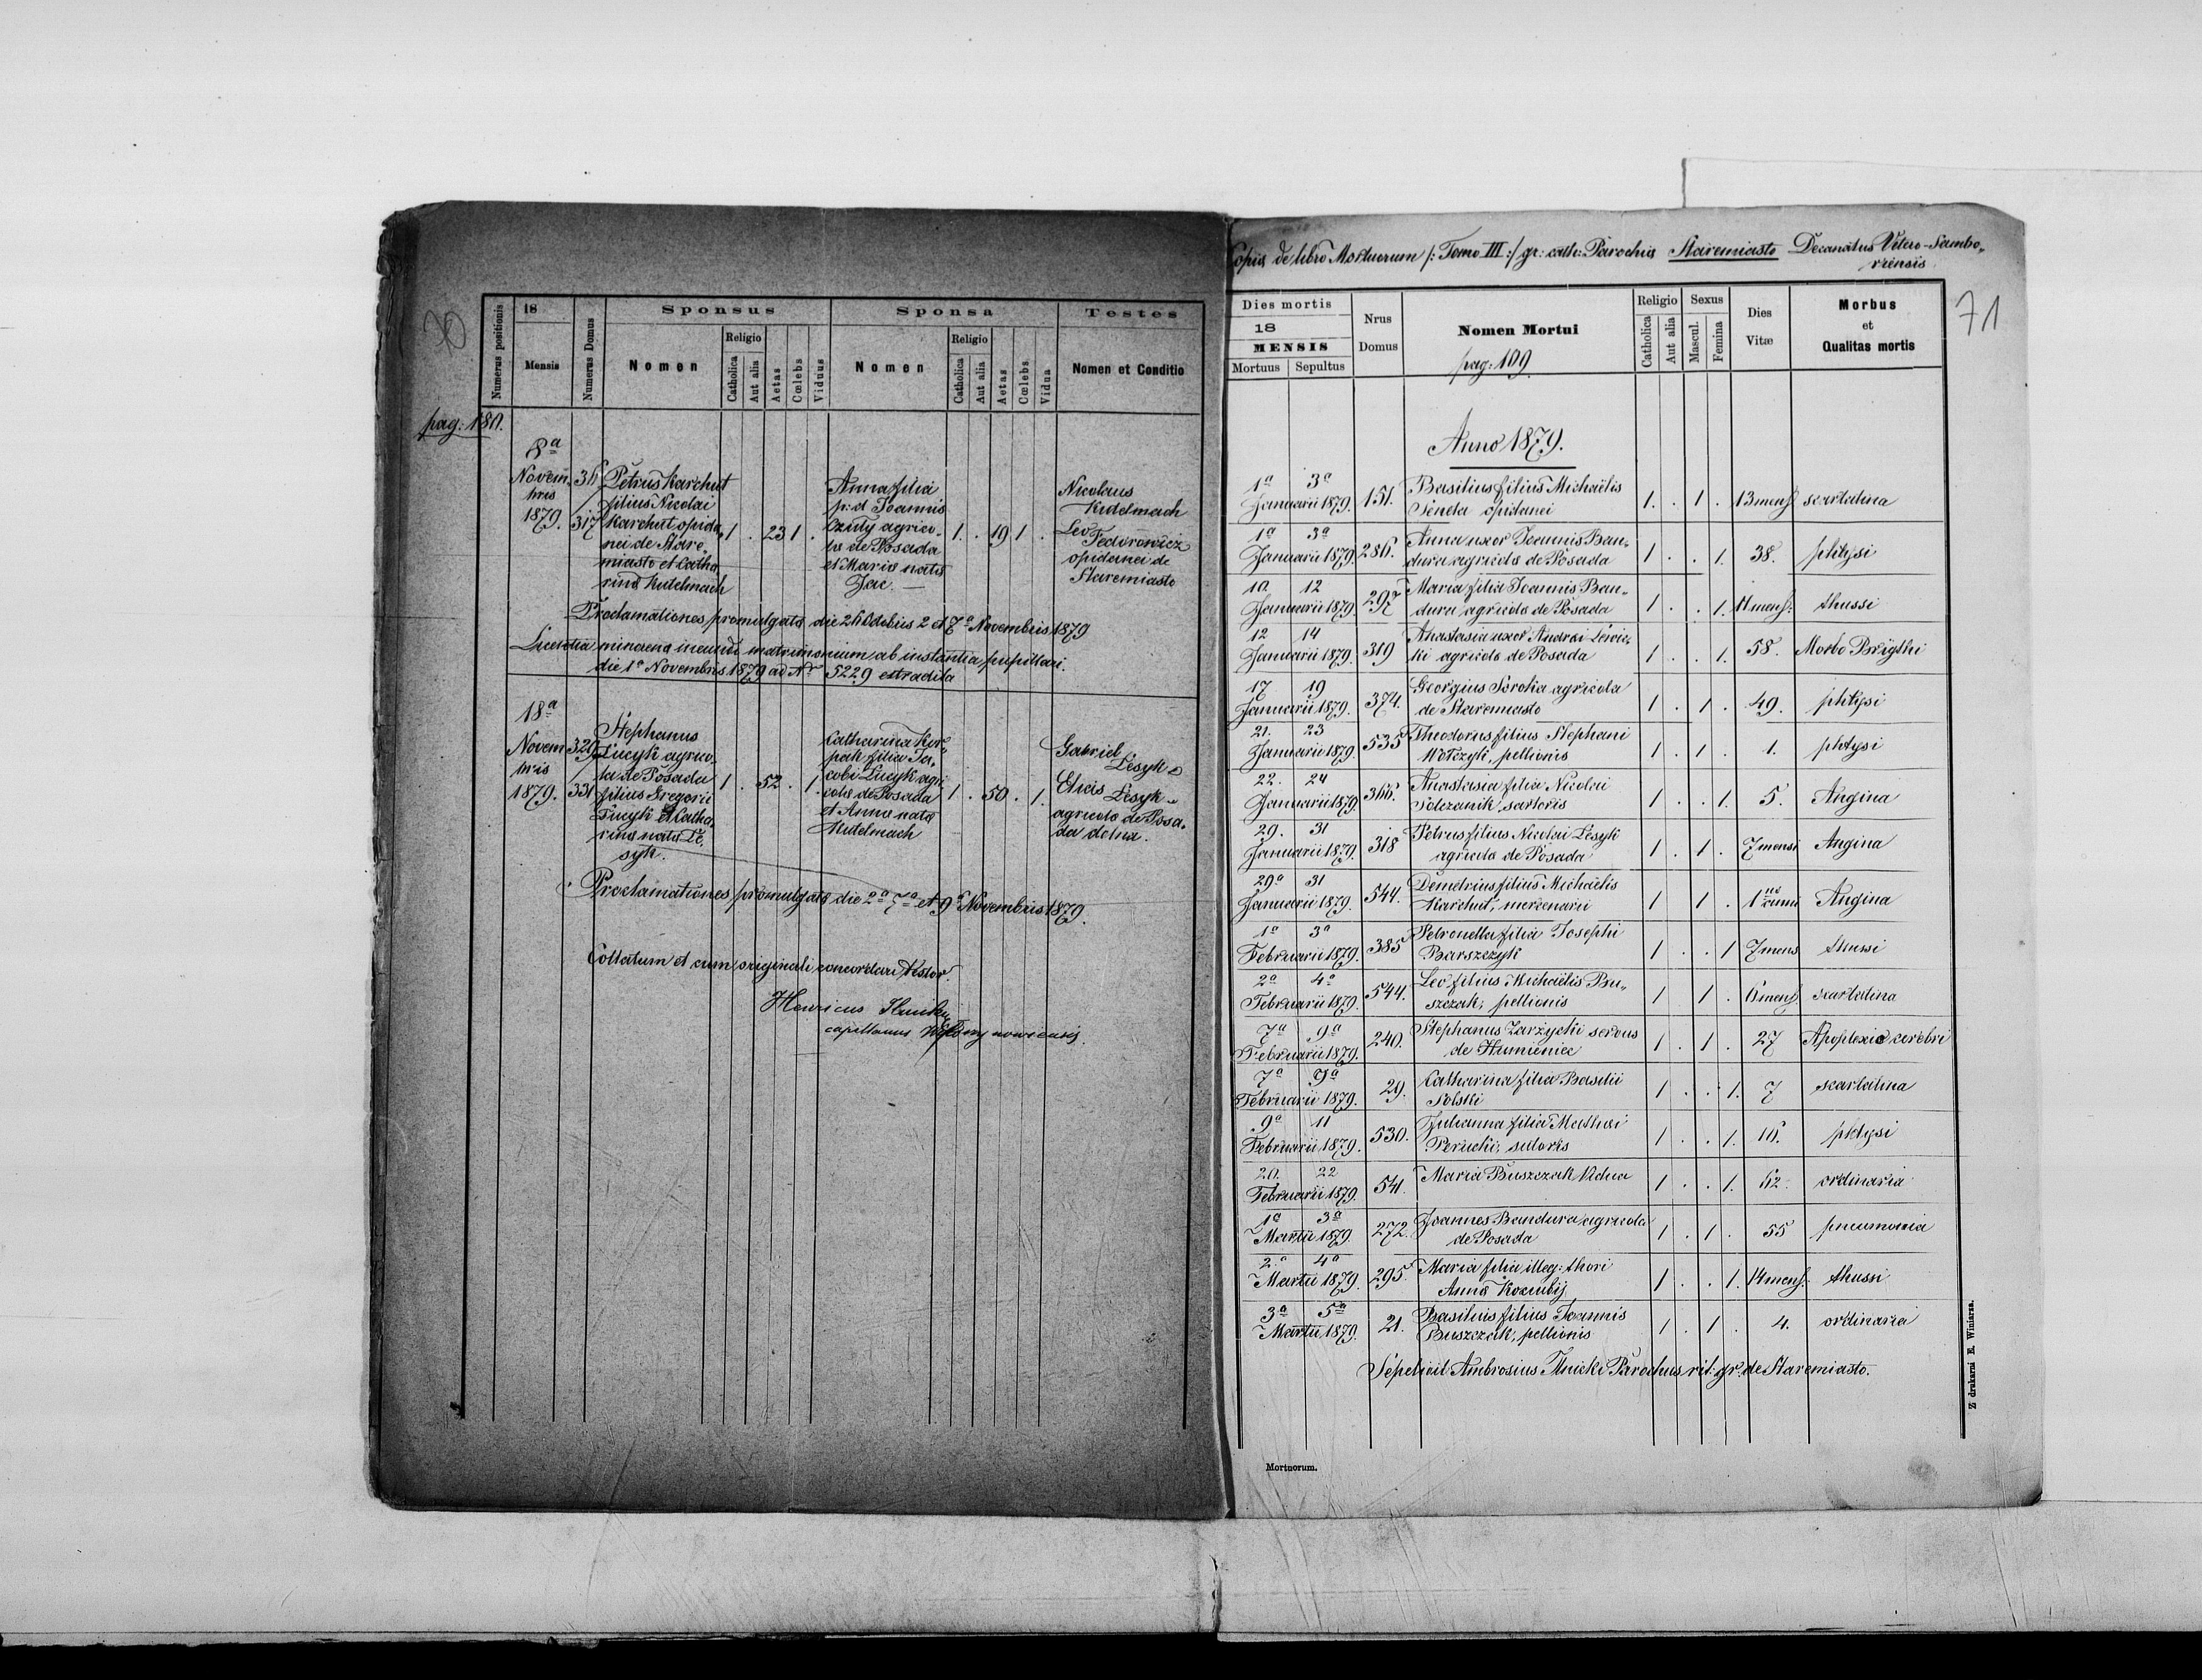 70
Numerus positionis
18
Mensis
Numerus Domus
Sponsus
Nomen
Religio
Catholica
Aut alia
Aetas
Cœlebs
Viduus
Sponsa
Nomen
Religio
Catholica
Aut alia
Aetas
Cœlebs
Vidua
Testes
Nomen et Conditio
pag: 180.
8ª
Novem
bris
1879.
36
317
Petrus Karchut
filius Nicolai
Karchut opida
nei de Stare
miasto et Catha
rina Kutelmach
1 . 23 1 .
Anna filia
p: d Joannis
Czuly agrico-
la de Posada
et Maria nata
Jac. —
1. . 19 1 .
Nicolaus
Kutelmach
Leo
Fedorowicz
opidanei de
Staremiasto
Proclamationes promulgata die 26 Octobris 2 et 7ª Novembris 1879
Licentia minorena ineundi matrimonium ab instantia pupillari
die 1ª Novembris 1879 ad Nr 5229 extradita
18ª
Novem
bris
1879.
329
331
Stephanus
Lucyk agrico
la de Posada
filius Gregorii
Lucyk et Catha
rina nata Le
syk.
1 . 52 . 1.
Catharina Kor
pak filia Ja
cobi Lucyk agri
cola de Posada
et Anna nata
Kutelmach
1 . 50 . 1.
Gabriel
Lesyk
Elias Lesyk
agricola de Posa
da dolna.
Proclamationes promulgata die 2ª 7ª et 9ª Novembris 1879.
Collatum et cum originali concordari testor.
Henricus
capellanus
Copia de libro Mortuorum /: Tomo III :/ gr: cath: Parochia Staremiasto Decanatus Vetero-Sambo
riensis
71
Dies mortis
18
MENSIS
Mortuus Sepultus
Nrus
Domus
Nomen Mortui
pag: 109
Religio
Catholica
Aut alia
Sexus
Mascul.
Femina
Dies
Vitæ
Morbus
et
Qualitas mortis
Anno 1879.
1ª 3ª
Januarii 1879. 151. Basilius filius Michaëlis
Seneta opidanei 1. . 1 . 13 mens scarlatina
1ª 3ª
Januarii 1879. 286. Anna uxor Joannis Ban-
dura agricola de Posada 1 . . 1. 38. phtysi
10 12
Januarii 1879. 297 Maria filia Joannis Ban-
dura agricola de Posada 1 . . 1. 11 mens: thussi
12 14
Januarii 1879. 319 Anastasia uxor Andrei Lewic-
ki agricola de Posada 1 . . 1. 58. Morbo Brigthi
17 19
Januarii 1879. 374. Georgius Soroka agricola
de Staremiasto 1 . 1 . 49. phtysi
21. 23
Januarii 1879. 535 Theodorus filius Stephani
Wołczyk, pellionis 1 . 1 . 1. phtysi
22. 24
Januarii 1879. 366. Anastasia filia Nicolai
Solczanik, sartoris 1 . . 1. 5. Angina
29. 31
Januarii 1879. 318 Petrus filius Nicolai Lesyk
agricola de Posada 1 . 1 . 7 mensi Angina
29ª 31
Januarii 1879. 544. Demetrius filius Michaëlis
Karchut, mercenarii 1 1 . 1 Angina
1ª 3ª
Februarii 1879. 385 Petronella filia Josephi
Barszczyk 1 . . 1 7 mens thussi
2ª 4ª
Februarii 1879. 544. Leo filius Michaëlis Bu-
szczak, pellionis 1 1 . 6 mens scarlatina
7ª 9ª
Februarii 1879. 240. Stephanus Zarzycki servus
de Humieniec 1 . 1 . 27 Apoplexia cerebri
7ª 9ª
Februarii 1879. 29. Catharina filia Basilii
Solski 1 . . 1. 7 scarlatina
9ª 11
Februarii 1879. 530. Julianna filia Mathei
Peruchi, sutoris 1 . . 1. 16. phtysi
20. 22
Februarii 1879. 541. Maria Buszczak Vidua 1 . . 1. 62 ordinaria
1ª 3ª
Martii 1879 272. Joannes Bandura agricola
de Posada 1 . 1 . 55 pneumonia
2ª 4ª
Martii 1879. 295. Maria filia illeg: thori
Anna Koziubij 1 . . 1. 14 mens. thussi
3ª 5ª
Martii 1879. 21. Basilius filius Joannis
Buszczak, pellionis 1 . 1 . 4. ordinaria
Sepelivit Ambrosius Ilnicki Parochus rit: gr. de Staremiasto.
Mortuorum.
Z drukarni E. Winiarza.